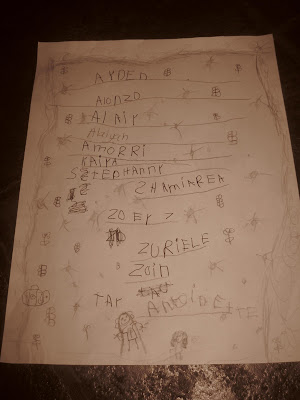 AYDEN
AlONZO
Al Air
AMORRI
KAIYA
StEPHANNY
ZHAMIAREA
ZOEY
ZURIELE
Zain
TAY
ANtOIDETTE